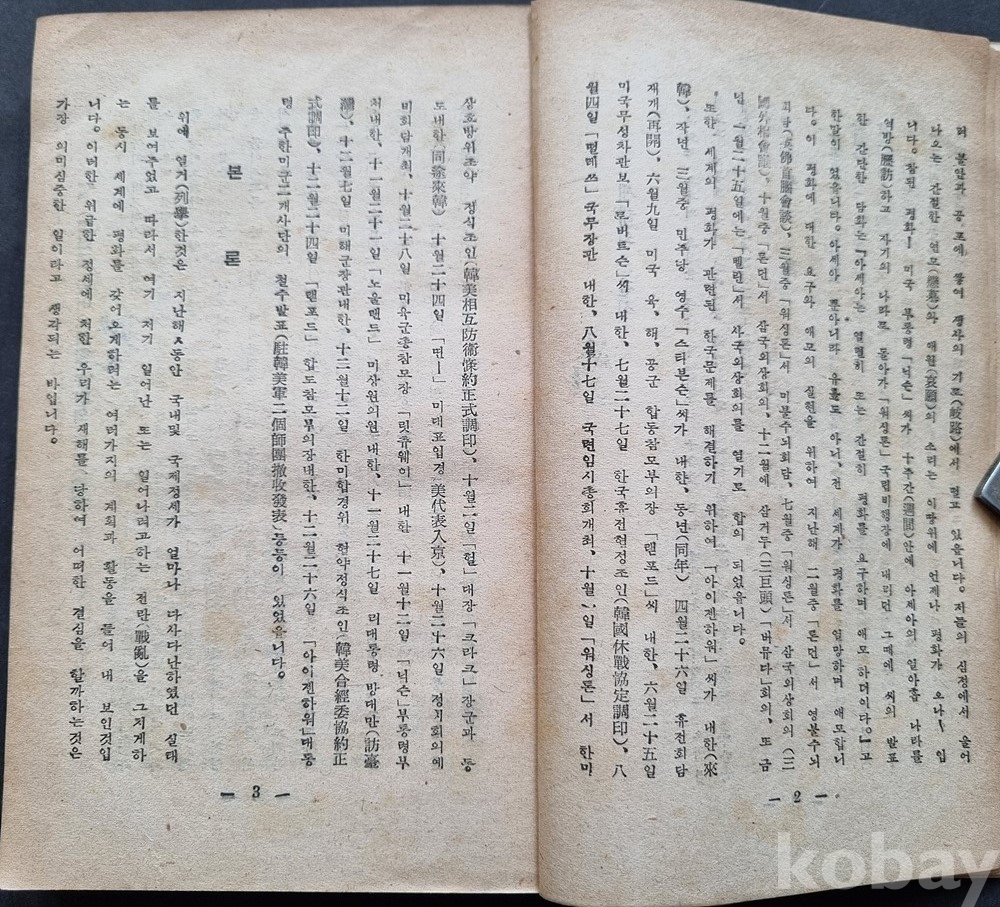 며 불안과 공포에 쌓여 생사의 기로(岐路)에서 떨고 있읍니다. 저들의 심정에서 울어
나오는 간절한 연모(戀慕)와 애원(哀願)의 소리는 이땅위에 언제나 평화가 오나— 입
니다. 참된 평화— 미국 부통령 「닉슨」씨가 十주간(週間)안에 아세아의 열아홉 나라를
역방(歷訪)하고 자기의 나라로 돌아가 「워싱톤」국립비행장에 내리던 그때에 씨의 발표
한 간단한 담화는 「아세아는 열렬히 또는 간절히 평화를 요구하며 애모 하더이다.」고
한말이 었읍니다. 아세아 뿐아니라 유롭도 아니, 전 세계가 평화를 열망하며 애모합니
다. 이 평화에 대한 요구와 애모의 실현을 위하여 지난해 二월중 「론먼」서 영불수뇌
회담(英佛首腦會談), 三월중 「워싱톤」서 미불수뇌회담, 七월중 「워싱톤」서 삼국외상회의 (三
國外相會議), 十월중 「론먼」서 삼국외상회의, 十二월에 삼거두(三巨頭) 「버뮤다」회의, 또 금
년 一월二十五일에는 「뻴린」서 사국외상회의를 열기로 합의 되었읍니다.
또한 세계의 평화가 관련된 한국문제를 해결하기 위하여 「아이젠하워」씨가 내한(來
韓), 작년 三월중 민주당 영수 「스티븐슨」씨가 내한, 동년(同年) 四월二十六일 휴전회담
재개(再開), 六월九일 미국 육、해、공군 합동참모부의장 「랜포드」씨 내한, 六월二十五일
미국무성차관보 「로버트슨」씨 내한, 七월二十七일 한국휴전협정조인(韓國休戰協定調印), 八
월四일 「떨레쓰」국무장관 내한, 八월十七일 국련임시총회개최, 十월一일 「워싱톤」서 한미
— 2 —
상호방위조약 정식조인(韓美相互防衛條約正式調印), 十월二일 「헐」대장 「크라크」장군과 동
도내한(同途來韓) 十월二十四일 「떤—」미대표입경(美代表入京), 十월二十六일 정치회의예
비회담개최, 十월二十八일 미육군총참모장 「릿쥬웨이」 내한 十一월十二일 「닉슨」부통령부
처내한, 十一월二十一일 「노올랜드」 미상원의원 내한, 十一월二十七일 리대통령 방대만(訪臺
灣), 十二월七일 미해군장관내한, 十二월十二일 한미합경위 협약정식조인(韓美合經委協約正
式調印), 十二월二十四일 「랜포드」 합도참모부의장내한, 十二월二十六일 「아이젠하워」대통
령 주한미군二개사단의 철수발표(駐韓美軍二個師團撤收發表)등등이 있었읍니다.
본 론
위에 열거(列擧)한것은 지난해 동안 국내및 국제정세가 얼마나 다사다단하였던 실태
를 보여주었고 따라서 여기 저기 일어난 또는 일어나려고하는 전란(戰亂)을 그치게하
는 동시 세계에 평화를 갖어오게하려는 여러가지의 계획과 활동을 들어 내 보인것입
니다. 이러한 위급한 정세에 처한 우리가 새해를 당하여 어떠한 결심을 할까하는것은
가장 의미심중한 일이라고 생각되는 바입니다.
— 3 —
kobay